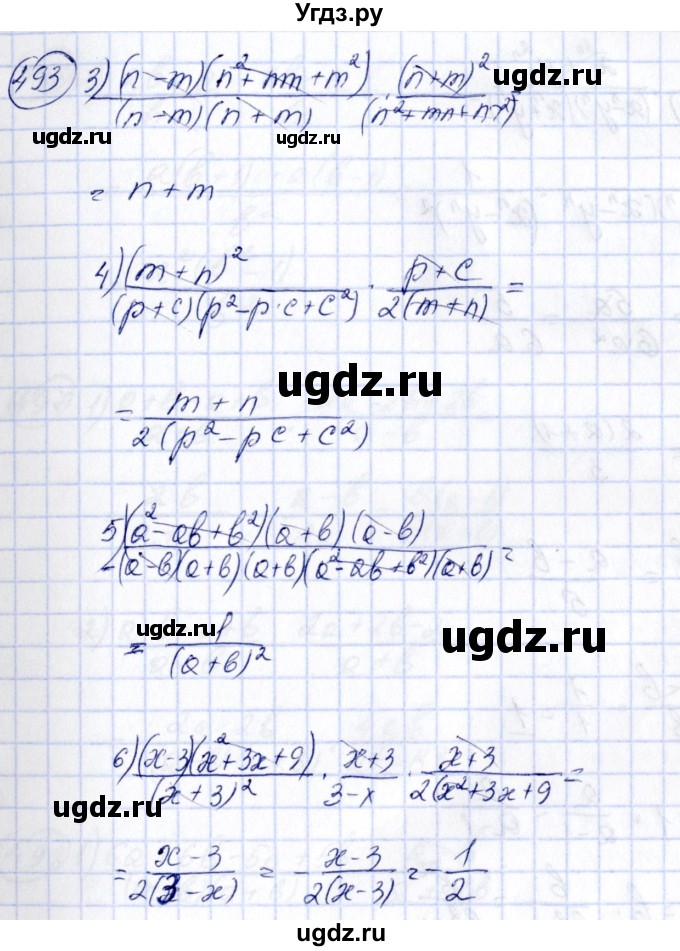 Угдз.ру
493 3) (n-m)(n²+nm+m²)/((n-m)(n+m)) · (n+m)²/(n²+mn+n²)
ugdz.ru
ugdz.ru
ugdz.ru
= n+m
4) (m+n)²/((p+c)(p²-p·c+c²)) · (p+c)/(2(m+n)) =
ugdz.ru
= (m+n)/(2(p²-pc+c²))
5) (a²-ab+b²)(a+b)(a-b)/(-(a-b)(a+b)(a+b)(a²-ab+b²)(a+b)) =
ugdz.ru
ugdz.ru
= 1/(a+b)²
6) (x-3)(x²+3x+9)/(x+3)² · (x+3)/(3-x) · (x+3)/(2(x²+3x+9) =
ugdz.ru
ugdz.ru
= (x-3)/(2(3-x)) = -(x-3)/(2(x-3)) = -1/2
ugdz.ru
ugdz.ru